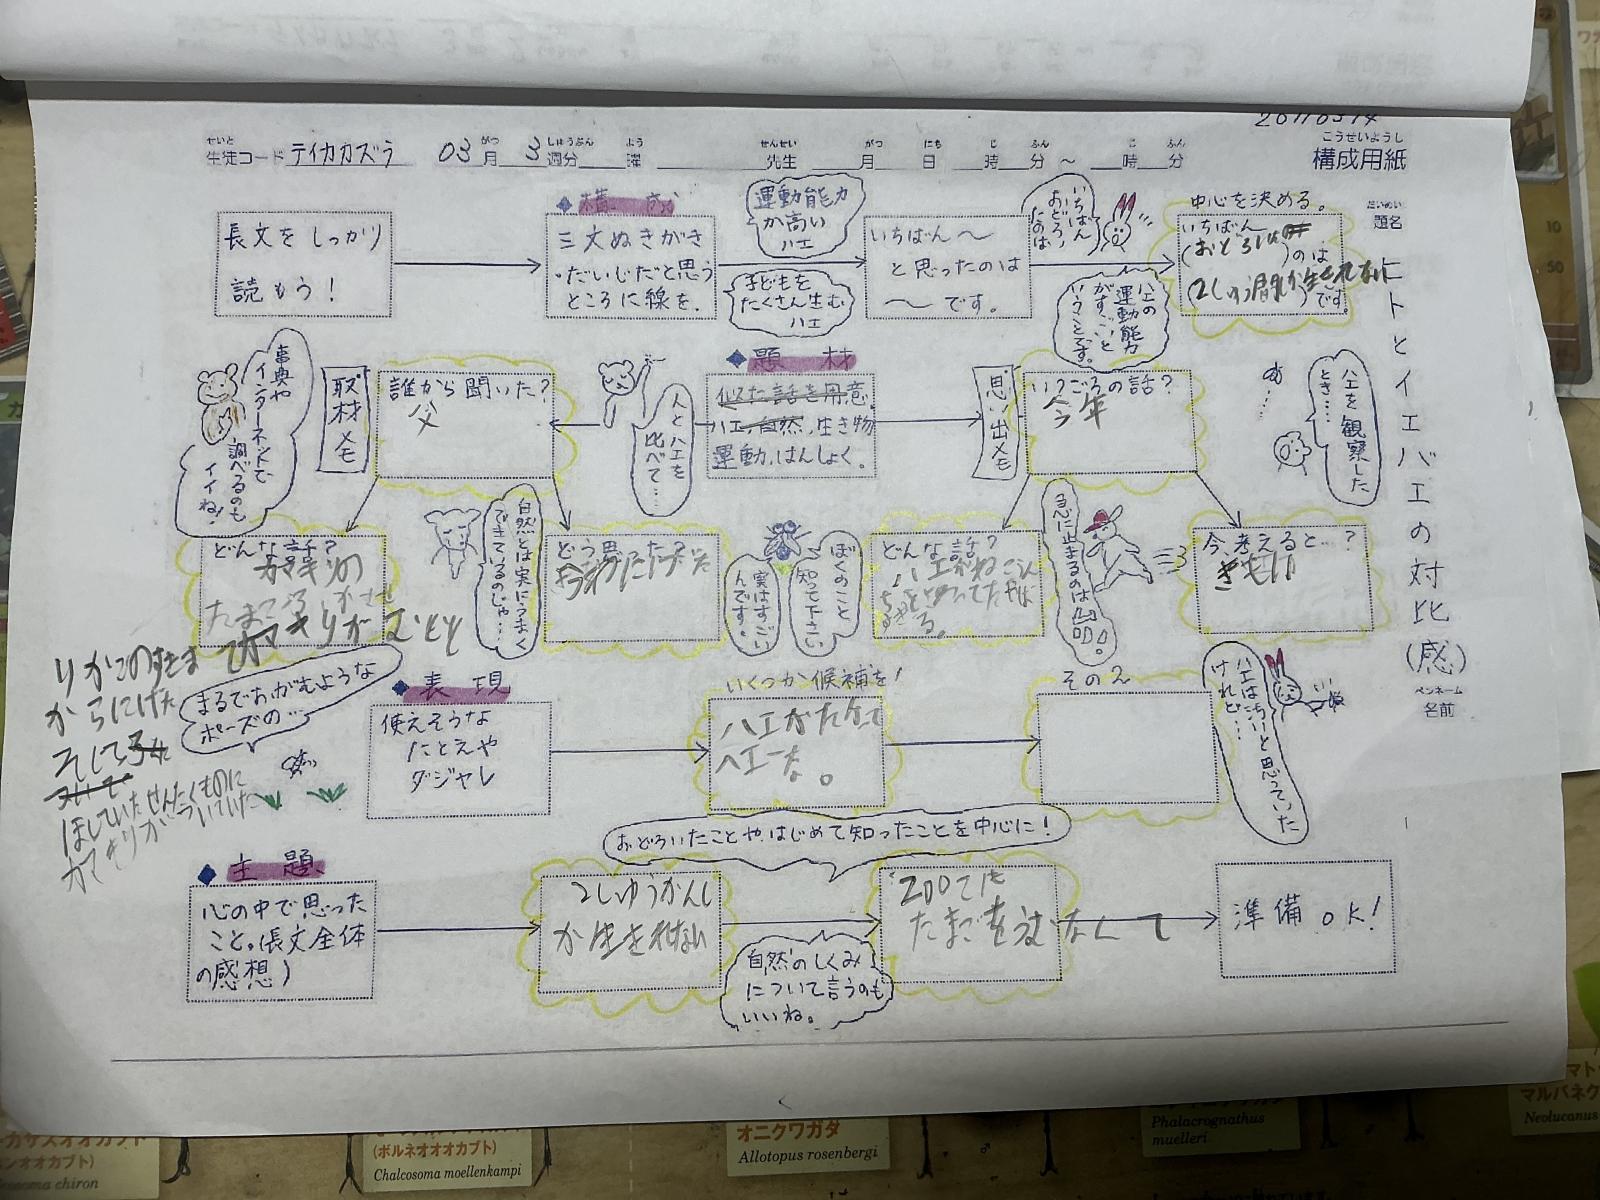 20110314
せいと がつ しゅうぶん よう せんせい がつ にち じ ふん こ ふん
生徒コード テイカカズラ 03月 3週分 曜 先生 月 日 時 分 ～ 時 分
こうせいようし
構成用紙
だいめい
題名
ヒトとイエバエの対比(感)
ペンネーム
名前
長文をしっかり
読もう!
◆構成
三文ぬきがき
・だいじだと思う
ところに線を.
運動能力
が高い
ハエ
子どもを
たくさん生む
ハエ
いちばん～
と思ったのは
～です。
いちばん
おどろい
たのは
ハエの
運動能力
がすごいと
いうことです。
中心を決める。
いちばん
のは
です。
事典や
インターネットで
調べるのも
イイね!
取材メモ
誰から聞いた?
父
人とハエを
比べて…
◆題材
似た話を用意.
ハエ,自然,生き物
運動,はんしょく.
思い出メモ
いつごろの話?
今年
ハエを観察した
とき…
どんな話?
カマキリの
りかごのすきま
からにげた
そして
ほしていたせんたくものに
カマキリがついていた
自然とは実にうまく
できてるのじゃ…
どう思った?
ぼくのこと
知って下さい
実はすごい
んです。
どんな話?
急に止まるのは
今、考えると…?
きもい
まるでおがむような
ポーズの…
◆表現
使えそうな
たとえや
ダジャレ
いくつか候補を!
ハエがたかって
ハエーな。
その2
ハエは汚いと思っていた
けれど…
おどろいたことや、はじめて知ったことを中心に!
◆主題
心の中で思った
こと。(長文全体
の感想)
2しゅうかんし
か生きれない
自然のしくみ
について言うのも
いいね。
200こも
たまごをうむなんて
準備OK!
(ボルネオオオカブト)
Chalcosoma moellenkampi
オニクワガタ
Allotopus rosenbergi
Phalacrognathus
muelleri
マルバネクワ
Neolucanus